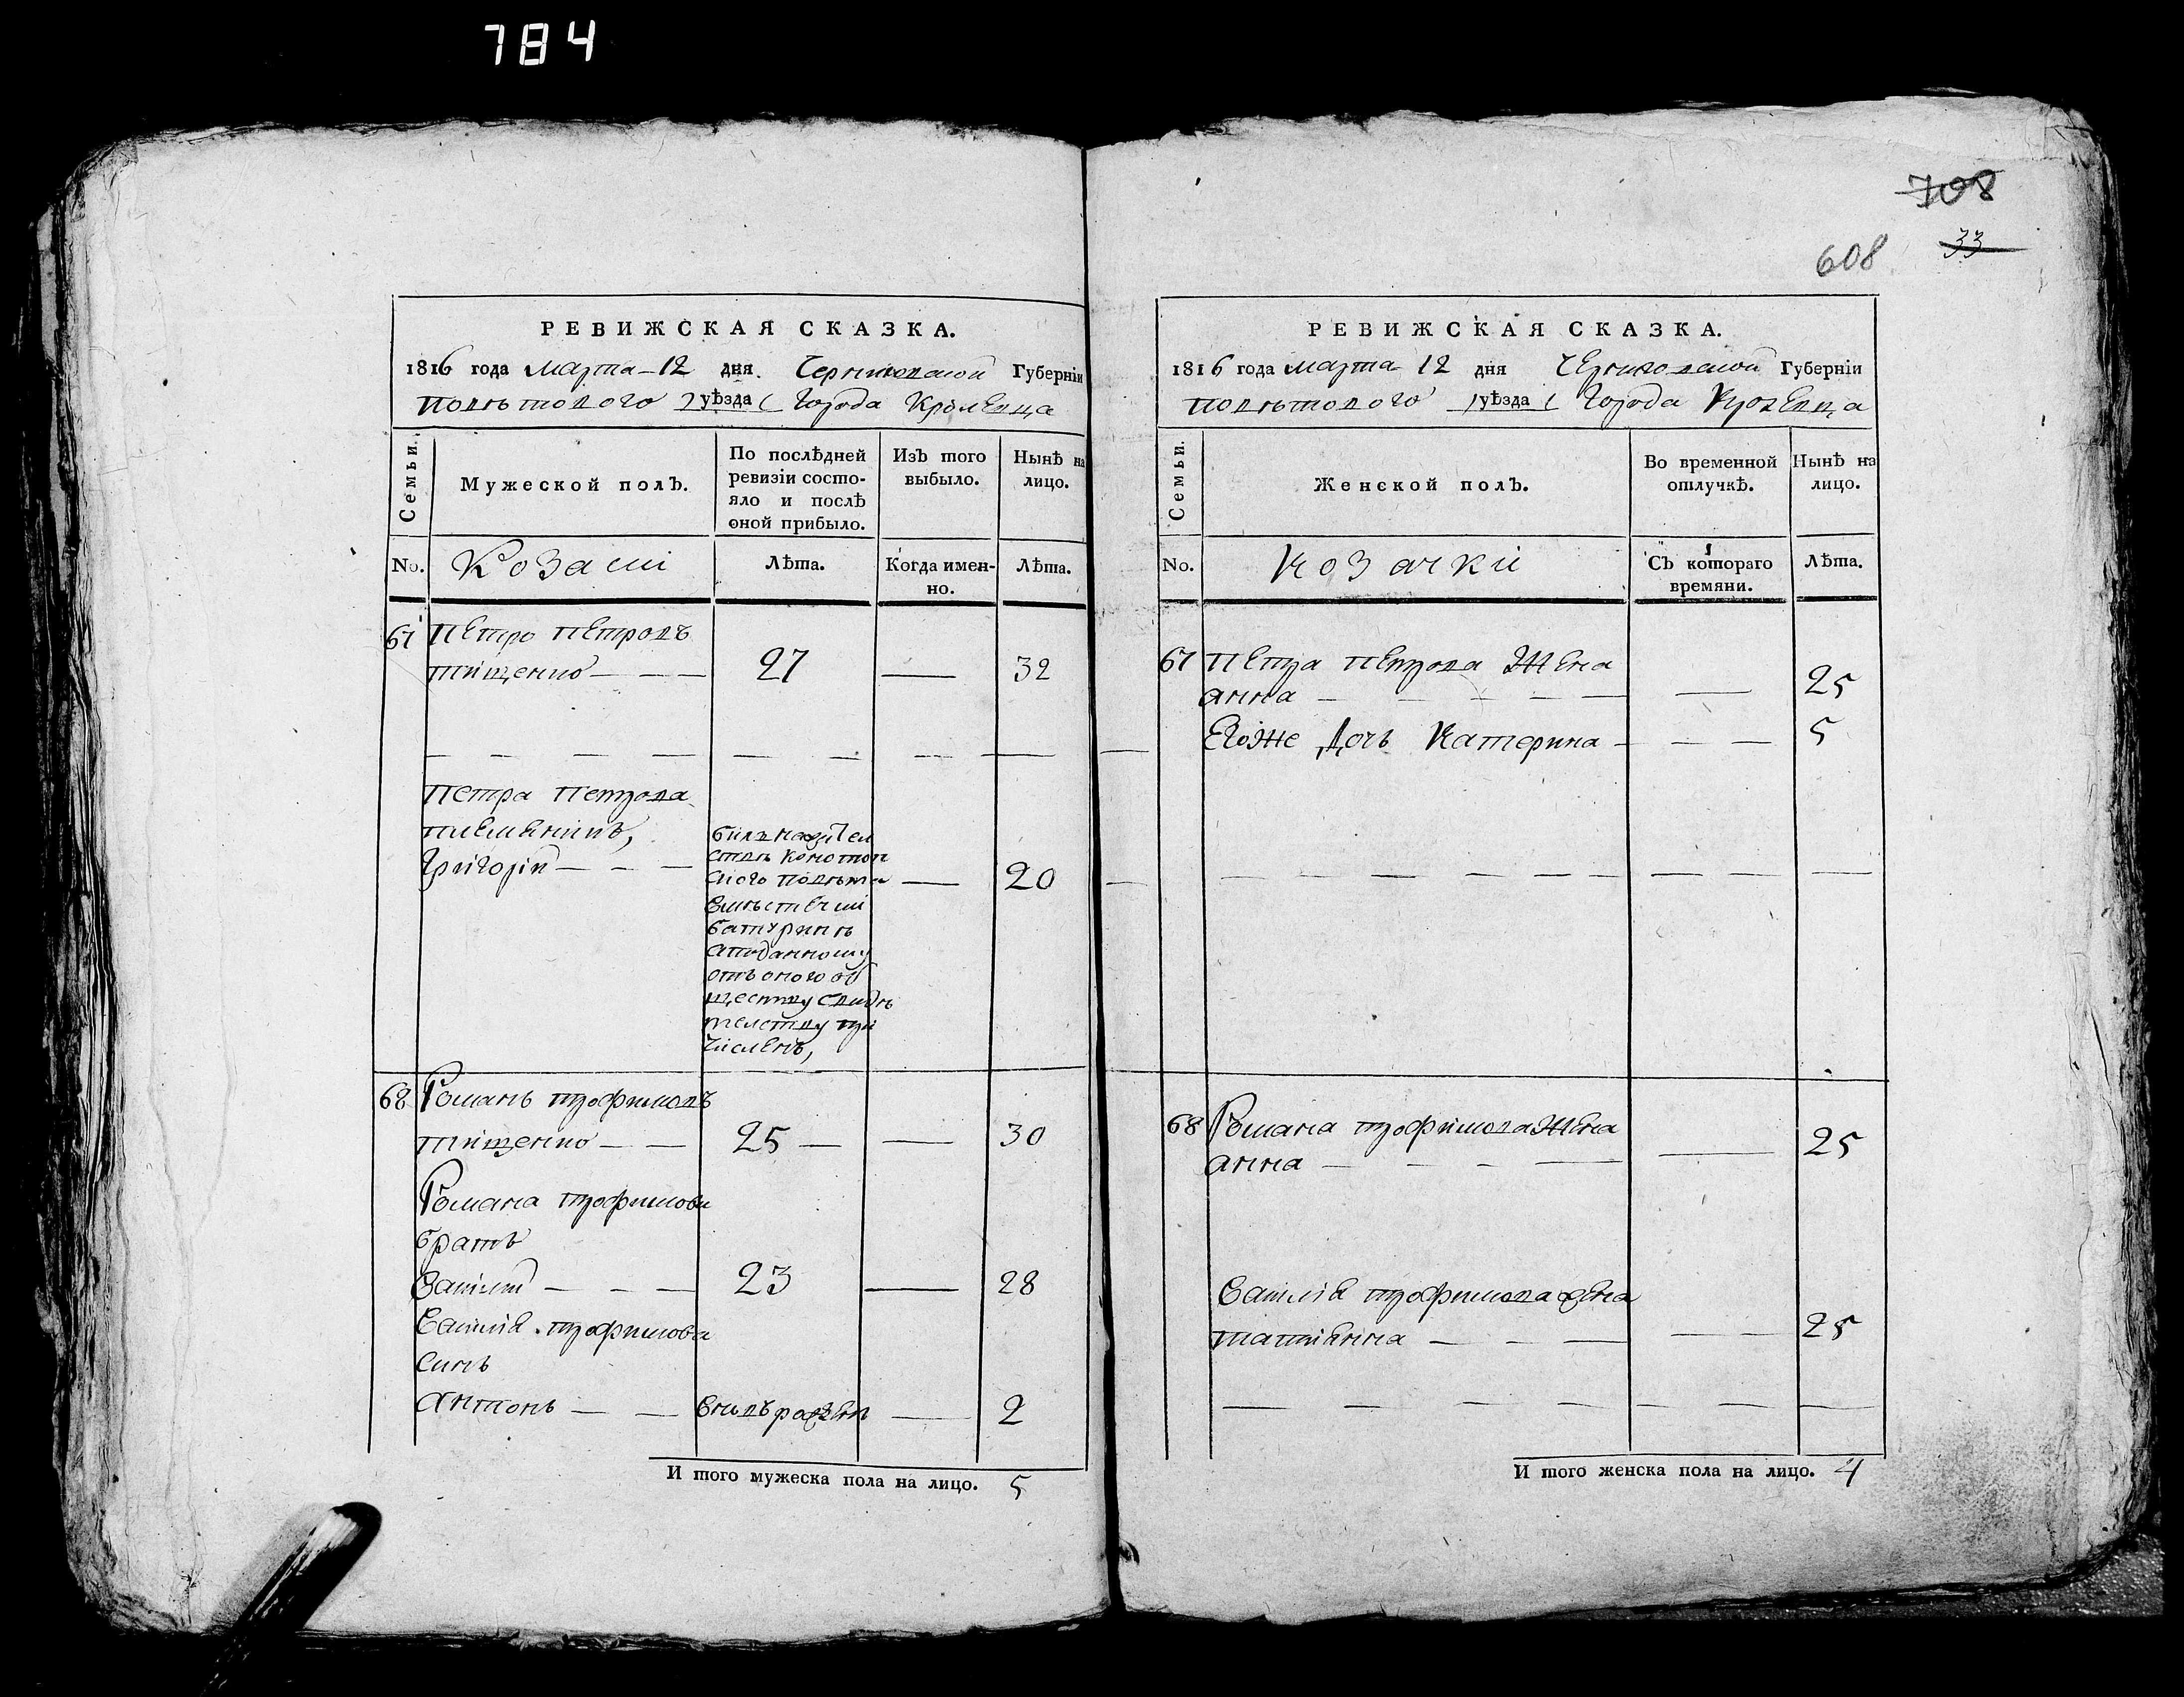 784
708
33
608
РЕВИЖСКАЯ СКАЗКА.
1816 года марта 12 дня Черниговской Губерніи
Повѣтового уѣзда Города Кролевца
Семьи.
Мужеской полъ.
По послѣдней
ревизіи состо-
яло и послѣ
оной прибыло.
Изъ того
выбыло.
Нынѣ на
лицо.
No.
Козаки
Лѣта.
Когда имен-
но.
Лѣта.
67 Петро Петровъ
Тищенко — — — 27 — 32
Петра Петрова
племянникъ,
Григорій — — — 20
билъ на жител
ствѣ Конотоп
ского повѣта
вмѣстечки
батуринѣ
отъ оного об
ществу свидѣ
телству при
численъ,
68 Романъ трофимовъ
тищенко — — 25 — — 30
Романа трофимова
братъ
Василій — — — 23 — 28
Василія трофимова
синъ
Антонъ — — вновъ рожденъ — 2
И того мужеска пола на лицо. 5
РЕВИЖСКАЯ СКАЗКА.
1816 года марта 12 дня Черниговской Губерніи
Повѣтового уѣзда Города Кролевца
Семьи.
Женской полъ.
Во временной
отлучкѣ.
Нынѣ на
лицо.
No.
Козачки
Съ котораго
времяни.
Лѣта.
67 Петра Петрова жена
анна — — — — — 25
Егоже дочь Катерина — — — 5
68 Романа трофимова жена
анна — — — — — 25
Василія трофимова жена
татіянна — — — — — 25
И того женска пола на лицо. 4